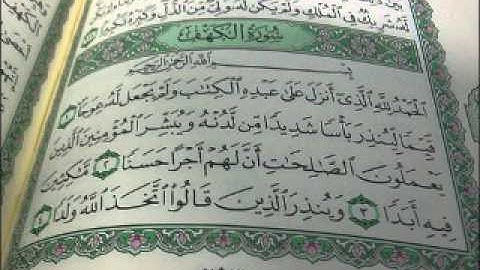 لَّهُۥ شَرِيكٌ فِى ٱلْمُلْكِ وَلَمْ يَكُن لَّهُۥ وَلِىٌّ مِّنَ ٱلذُّلِّ وَكَبِّرْهُ تَكْبِيرًا
سُورَةُ الكَهْفِ
بِسْمِ ٱللَّهِ ٱلرَّحْمَٰنِ ٱلرَّحِيمِ
ٱلْحَمْدُ لِلَّهِ ٱلَّذِىٓ أَنزَلَ عَلَىٰ عَبْدِهِ ٱلْكِتَٰبَ وَلَمْ يَجْعَل لَّهُۥ عِوَجَا ۜ ١
قَيِّمًا لِّيُنذِرَ بَأْسًا شَدِيدًا مِّن لَّدُنْهُ وَيُبَشِّرَ ٱلْمُؤْمِنِينَ ٱلَّذِينَ
يَعْمَلُونَ ٱلصَّٰلِحَٰتِ أَنَّ لَهُمْ أَجْرًا حَسَنًا ٢ مَّٰكِثِينَ
فِيهِ أَبَدًا ٣ وَيُنذِرَ ٱلَّذِينَ قَالُوا۟ ٱتَّخَذَ ٱللَّهُ وَلَدًا ٤